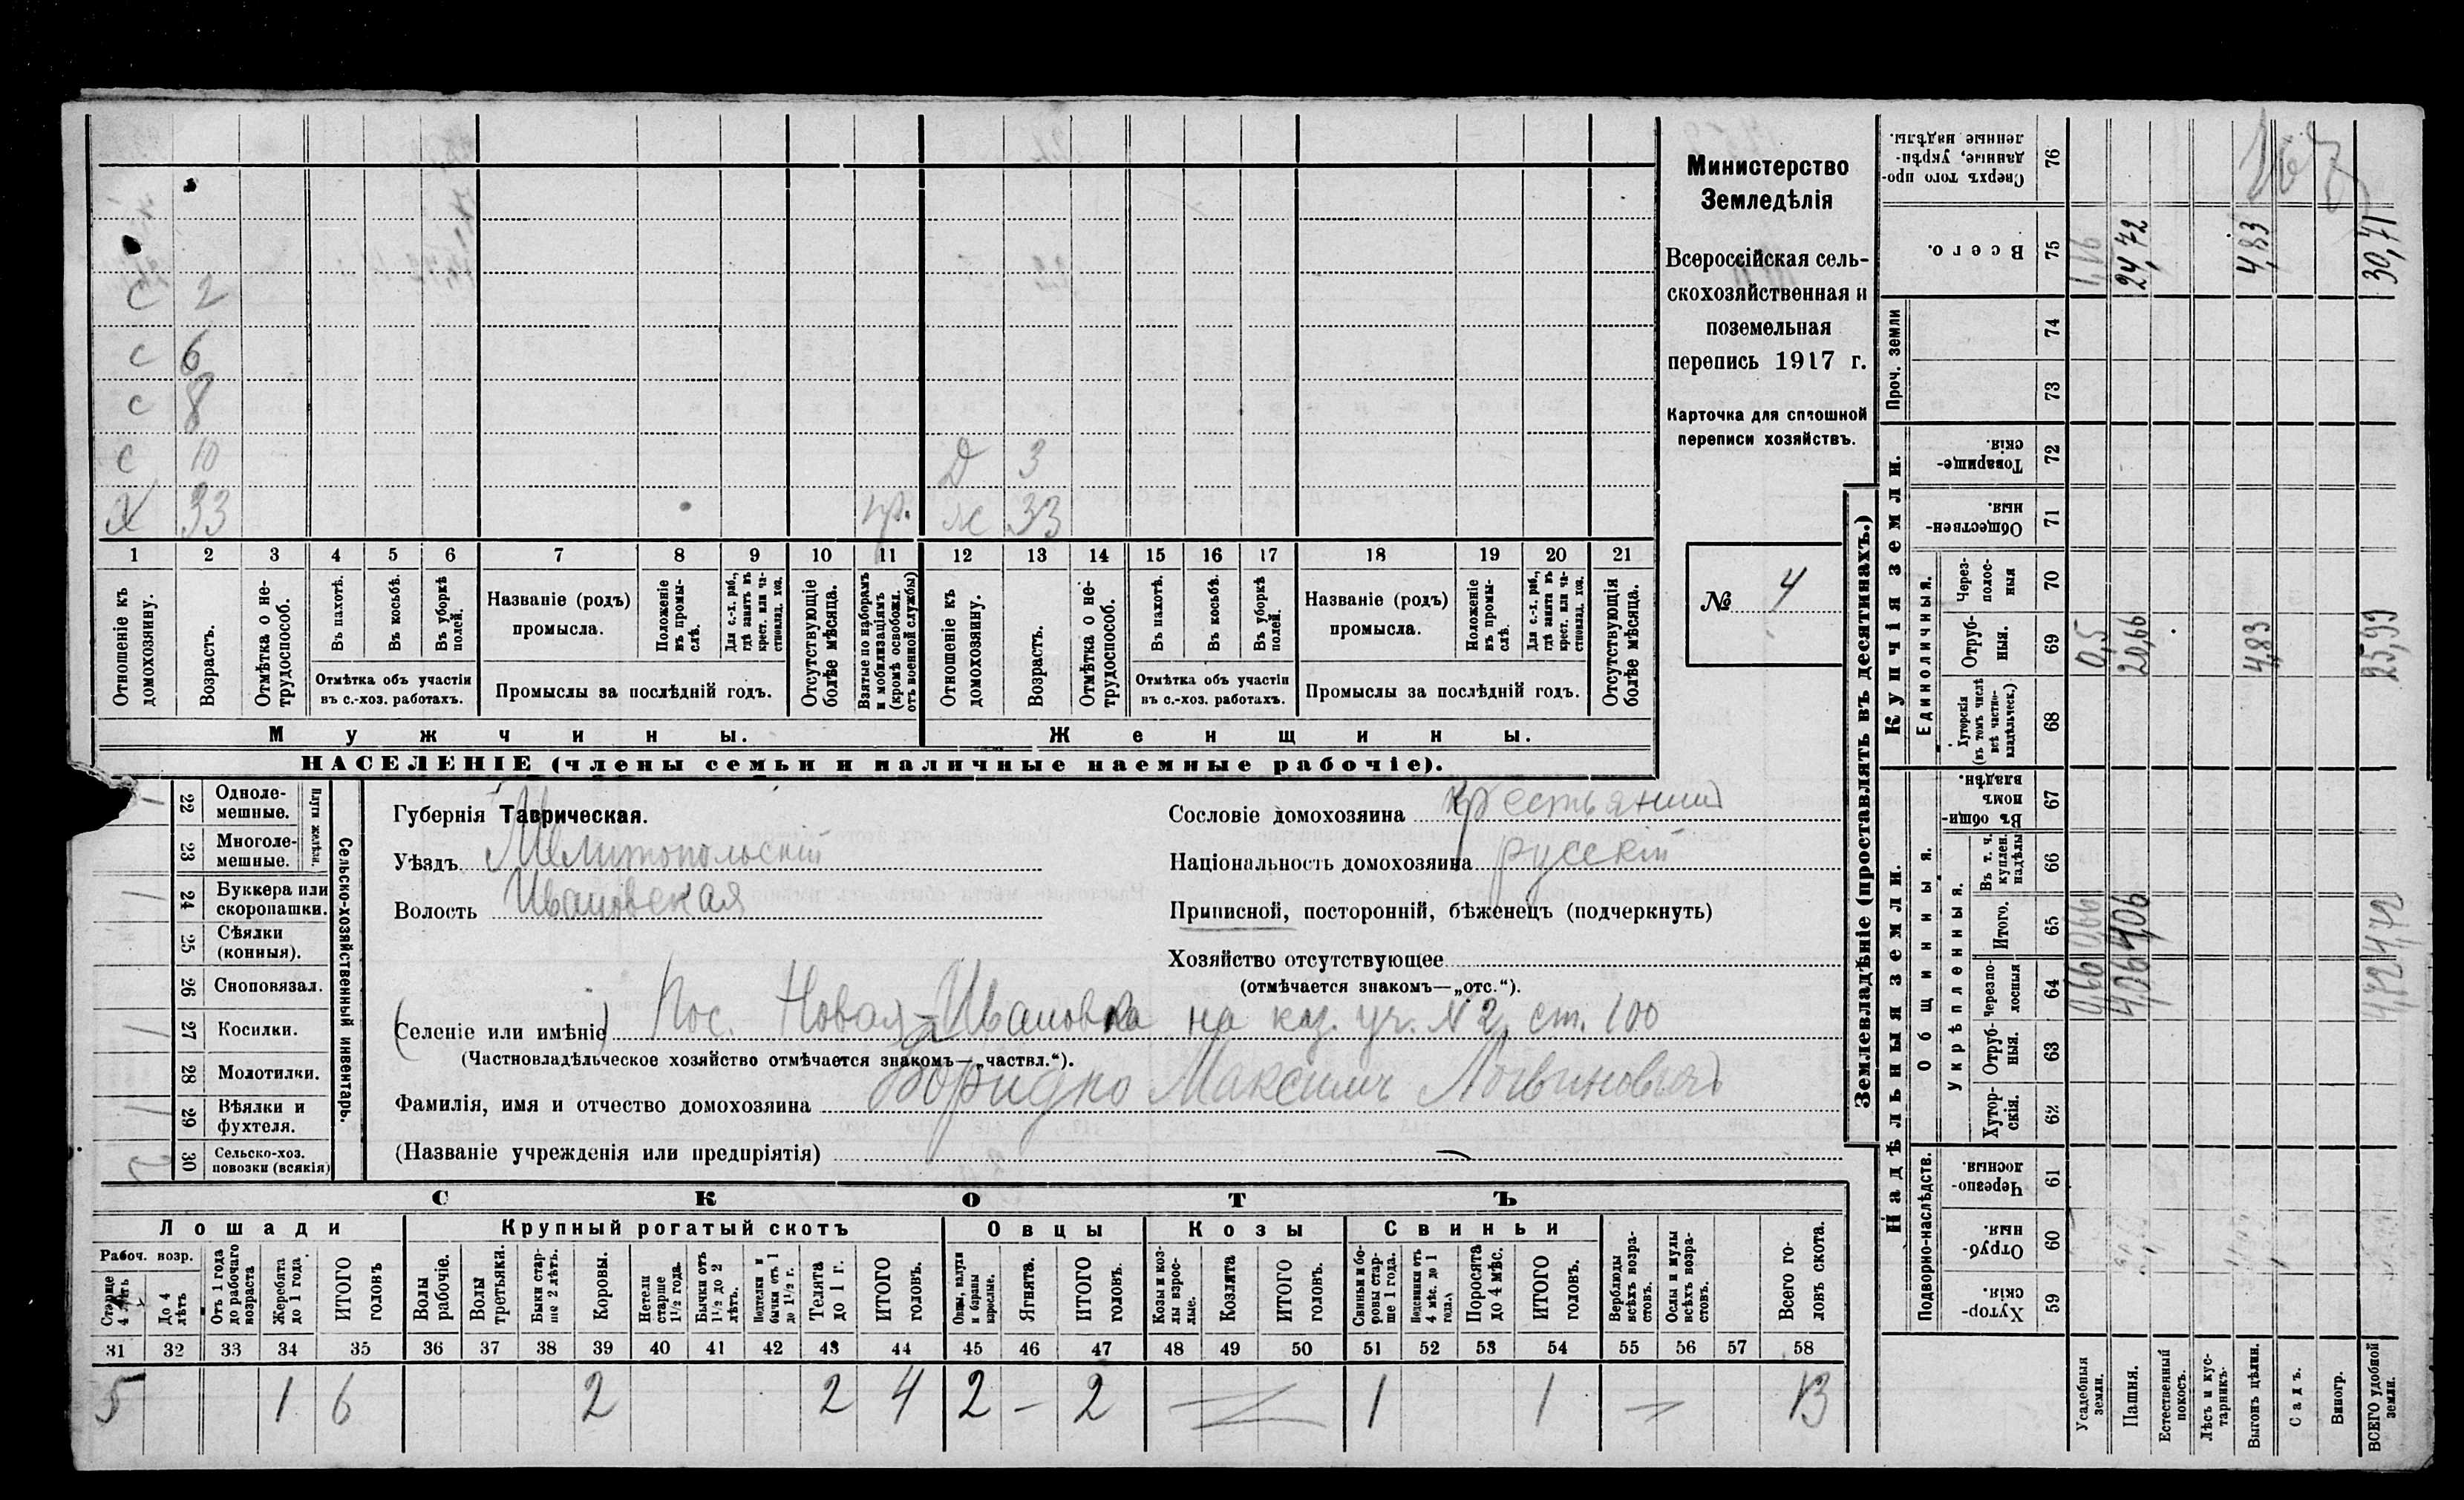 Министерство
Земледѣлія
Всероссійская сель-
скохозяйственная и
поземельная
перепись 1917 г.
Карточка для сплошной
переписи хозяйствъ.
№ 4
с 2
с 6
с 8
с 10 Д 3
Х 33 пр. ж 33
1 2 3 4 5 6 7 8 9 10 11 12 13 14 15 16 17 18 19 20 21
Отношеніе къ домохозяину.
Возрастъ.
Отмѣтка о не-трудоспособ.
Въ пахотѣ.
Въ косьбѣ.
Въ уборкѣ полей.
Отмѣтка объ участіи
въ с.-хоз. работахъ.
Названіе (родъ)
промысла.
Положеніе въ промы-слѣ.
Для с.-х. раб., гдѣ занятъ въ крест. или ча-стновлад. хоз.
Промыслы за послѣдній годъ.
Отсутствующіе болѣе мѣсяца.
Взятые по наборамъ и мобилизаціямъ (кромѣ освобожд. отъ военной службы)
Отношеніе къ домохозяину.
Возрастъ.
Отмѣтка о не-трудоспособ.
Въ пахотѣ.
Въ косьбѣ.
Въ уборкѣ полей.
Отмѣтка объ участіи
въ с.-хоз. работахъ.
Названіе (родъ)
промысла.
Положеніе въ промы-слѣ.
Для с.-х. раб., гдѣ занята въ крест. или ча-стновлад. хоз.
Промыслы за послѣдній годъ.
Отсутствующія болѣе мѣсяца.
Мужчины. Женщины.
НАСЕЛЕНІЕ (члены семьи и наличные наемные рабочіе).
Сельско-хозяйственный инвентарь.
Плуги желѣзн.
22 Одноле-мешные.
23 Многоле-мешные.
1 24 Буккера или скоропашки.
25 Сѣялки (конныя).
26 Сноповязал.
1 27 Косилки.
28 Молотилки.
1 29 Вѣялки и фухтеля.
2 30 Сельско-хоз. повозки (всякія)
Губернія Таврическая.
Уѣздъ Мелитопольскій
Волость Ивановская
Сословіе домохозяина крестьянинъ
Національность домохозяина русскій
Приписной, посторонній, бѣженецъ (подчеркнуть)
Хозяйство отсутствующее
(отмѣчается знакомъ—„отс.“).
(Селеніе или имѣніе) Пос. Новая-Ивановка на каз. уч. №2, ст. 100
(Частновладѣльческое хозяйство отмѣчается знакомъ—„частвл.“).
Фамилія, имя и отчество домохозяина Максимъ Логвиновичъ
(Названіе учрежденія или предпріятія)
СКОТЪ
Лошади Крупный рогатый скотъ Овцы Козы Свиньи
Рабоч. возр.
Старше 4 лѣтъ
До 4 лѣтъ
Отъ 1 года до рабочаго возраста
Жеребята до 1 года.
ИТОГО головъ
Волы рабочіе.
Волы третьяки.
Быки стар-ше 2 лѣтъ.
Коровы.
Нетели старше 1½ года.
Бычки отъ 1½ до 2 лѣтъ.
Подтелки и бычки отъ 1 до 1½ г.
Телята до 1 г.
ИТОГО головъ.
Овцы, валухи и бараны взрослые.
Ягнята.
ИТОГО головъ.
Козы и коз-лы взрос-лые.
Козлята
ИТОГО головъ.
Свиньи и бо-ровы стар-ше 1 года.
Подсвинки отъ 4 мѣс. до 1 года.
Поросята до 4 мѣс.
ИТОГО головъ.
Верблюды всѣхъ возра-стовъ.
Ослы и мулы всѣхъ возра-стовъ.
Всего го-ловъ скота.
31 32 33 34 35 36 37 38 39 40 41 42 43 44 45 46 47 48 49 50 51 52 53 54 55 56 57 58
5 1 6 2 2 4 2 — 2 — 1 1 — 13
Землевладѣніе (проставлять въ десятинахъ.)
Сверхъ того про-данные, укрѣп-ленные надѣлы. 76
Всего. 75 1,16 24,72 4,83 30,71
Проч. земли 74
73
Купчія земли.
Товарище-скія. 72
Обществен-ныя. 71
Единоличныя.
Через-полос-ныя 70
Отруб-ныя. 69 0,5 20,66 4,83 25,99
Хуторскія (въ томъ числѣ всѣ частно-владѣльческ.) 68
Надѣльныя земли.
Общинныя.
Въ общи-номъ владѣн. 67
Укрѣпленныя.
Въ т. ч. куплен. надѣлы 66
Итого. 65 0,66 4,06 4,72
Черезпо-лосныя 64 0,66 4,06 4,72
Отруб-ныя. 63
Хутор-скія. 62
Подворно-наслѣдств.
Черезпо-лосныя. 61
Отруб-ныя. 60
Хутор-скія. 59
Усадебныя земли.
Пашня.
Естественный покосъ.
Лѣсъ и кус-тарникъ.
Выгонъ цѣлин.
Садъ.
Виногр.
ВСЕГО удобной земли.